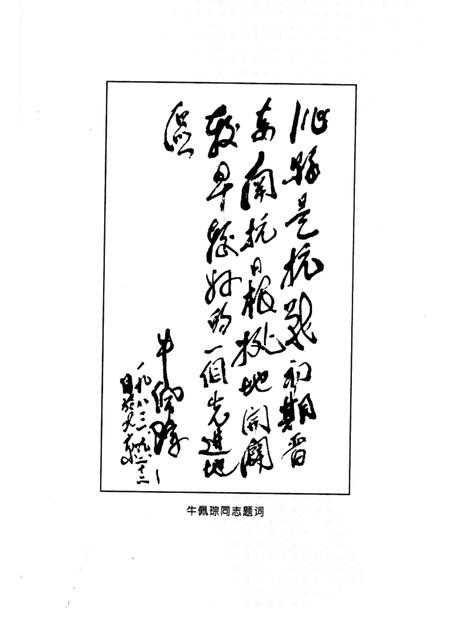 沁县是抗战初期晋
东南抗日根据地开辟
较早较好的一个先进地
区
牛佩琮
一九八三、九、二十二
牛佩琮同志题词